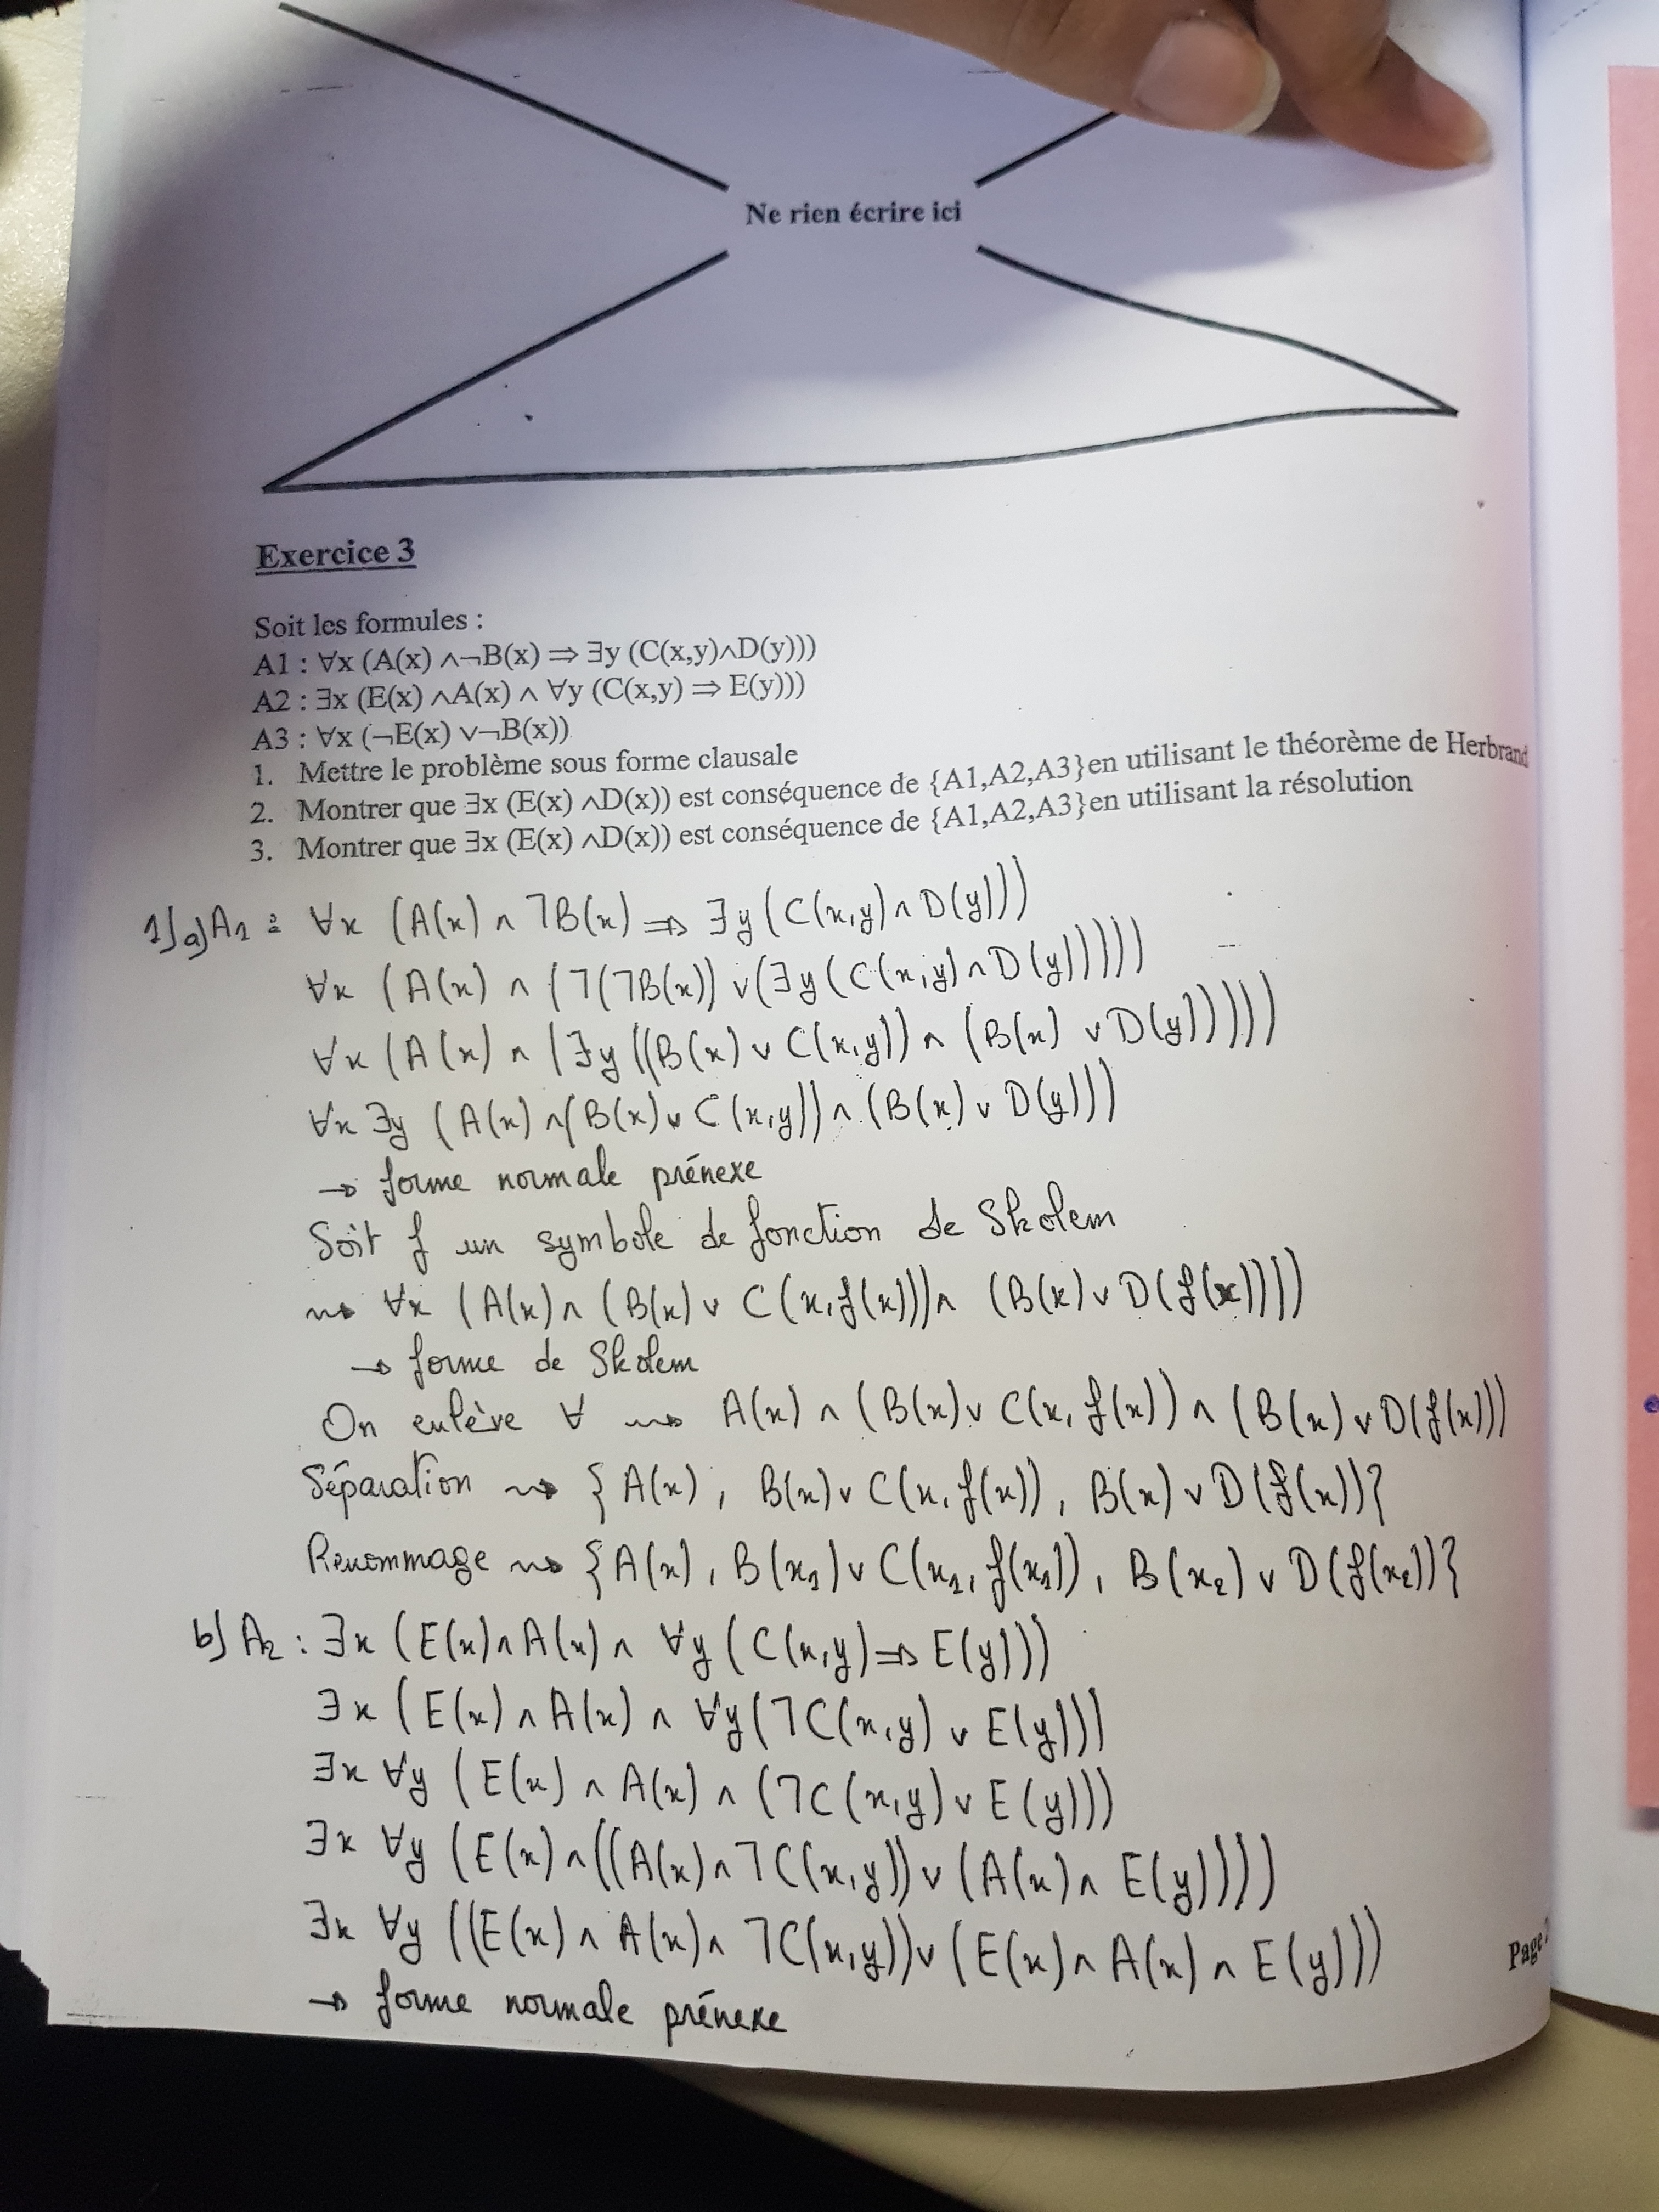 Ne rien écrire ici
Exercice 3
Soit les formules :
A1 : ∀x (A(x) ∧¬B(x) ⇒ ∃y (C(x,y)∧D(y)))
A2 : ∃x (E(x) ∧A(x) ∧ ∀y (C(x,y) ⇒ E(y)))
A3 : ∀x (¬E(x) ∨¬B(x))
1. Mettre le problème sous forme clausale
2. Montrer que ∃x (E(x) ∧D(x)) est conséquence de {A1,A2,A3}en utilisant le théorème de Herbrand
3. Montrer que ∃x (E(x) ∧D(x)) est conséquence de {A1,A2,A3}en utilisant la résolution
1) a) A1 : ∀x (A(x) ∧ ¬B(x) ⇒ ∃y (C(x,y) ∧ D(y)))
∀x (A(x) ∧ (¬(¬B(x)) ∨ (∃y (C(x,y) ∧ D(y)))))
∀x (A(x) ∧ (∃y ((B(x) ∨ C(x,y)) ∧ (B(x) ∨ D(y)))))
∀x ∃y (A(x) ∧ (B(x) ∨ C(x,y)) ∧ (B(x) ∨ D(y)))
→ forme normale prénexe
Soit f un symbole de fonction de Skolem
⇝ ∀x (A(x) ∧ (B(x) ∨ C(x, f(x))) ∧ (B(x) ∨ D(f(x))))
→ forme de Skolem
On enlève ∀ ⇝ A(x) ∧ (B(x) ∨ C(x, f(x)) ∧ (B(x) ∨ D(f(x)))
Séparation ⇝ {A(x), B(x) ∨ C(x, f(x)), B(x) ∨ D(f(x))}
Renommage ⇝ {A(x), B(x1) ∨ C(x1, f(x1)), B(x2) ∨ D(f(x2))}
b) A2 : ∃x (E(x) ∧ A(x) ∧ ∀y (C(x,y) ⇒ E(y)))
∃x (E(x) ∧ A(x) ∧ ∀y (¬C(x,y) ∨ E(y)))
∃x ∀y (E(x) ∧ A(x) ∧ (¬C(x,y) ∨ E(y)))
∃x ∀y (E(x) ∧ ((A(x) ∧ ¬C(x,y)) ∨ (A(x) ∧ E(y))))
∃x ∀y ((E(x) ∧ A(x) ∧ ¬C(x,y)) ∨ (E(x) ∧ A(x) ∧ E(y)))
→ forme normale prénexe
Page